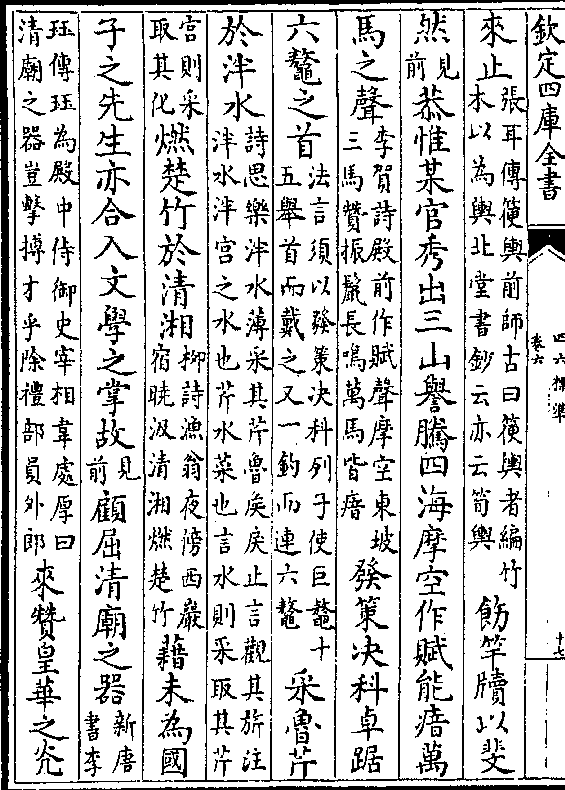 欽定四庫全書
四六標準
卷六
十七
來止
張耳傳箯輿前師古曰箯輿者編竹
木以為輿北堂書鈔云亦云筍輿
飭竿牘以斐
然
見
前
恭惟某官秀出三山譽騰四海摩空作賦能瘖萬
馬之聲
李賀詩殿前作賦聲摩空東坡
三馬贊振鬛長鳴萬馬皆瘖
發策決科卓踞
六鼇之首
法言須以發策决科列子使巨鼇十
五舉首而戴之又一釣而連六鼇
采魯芹
於泮水
詩思樂泮水薄采其芹魯侯戾止言觀其旂注
泮水泮宫之水也芹水菜也言水則采取其芹
宫則采
取其化
燃楚竹於清湘
柳詩漁翁夜傍西巖
宿曉汲清湘燃楚竹
藉未為國
子之先生亦合入文學之掌故
見
前
顧屈清廟之器
新唐
書李
珏傳珏為殿中侍御史宰相韋處厚曰
清廟之器豈擊搏才乎除禮部員外郎
來贊皇華之光